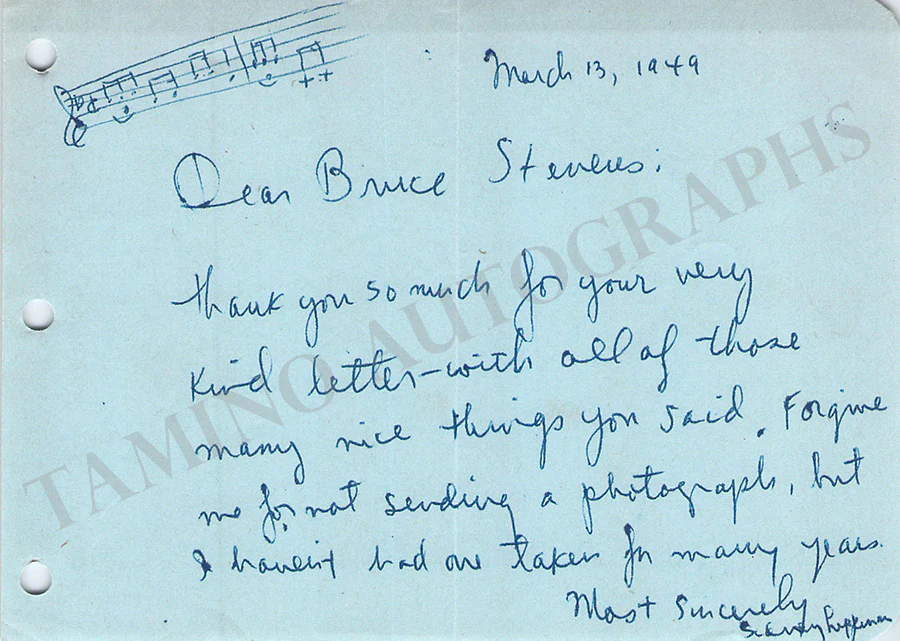 March 13, 1949
Dear Bruce Stevens:
Thank you so much for your very
kind letter-with all of those
many nice things you said. Forgive
me for not sending a photograph, but
I haven't had one taken for many years.
Most Sincerely
Sidney Lippman
TAMINO AUTOGRAPHS